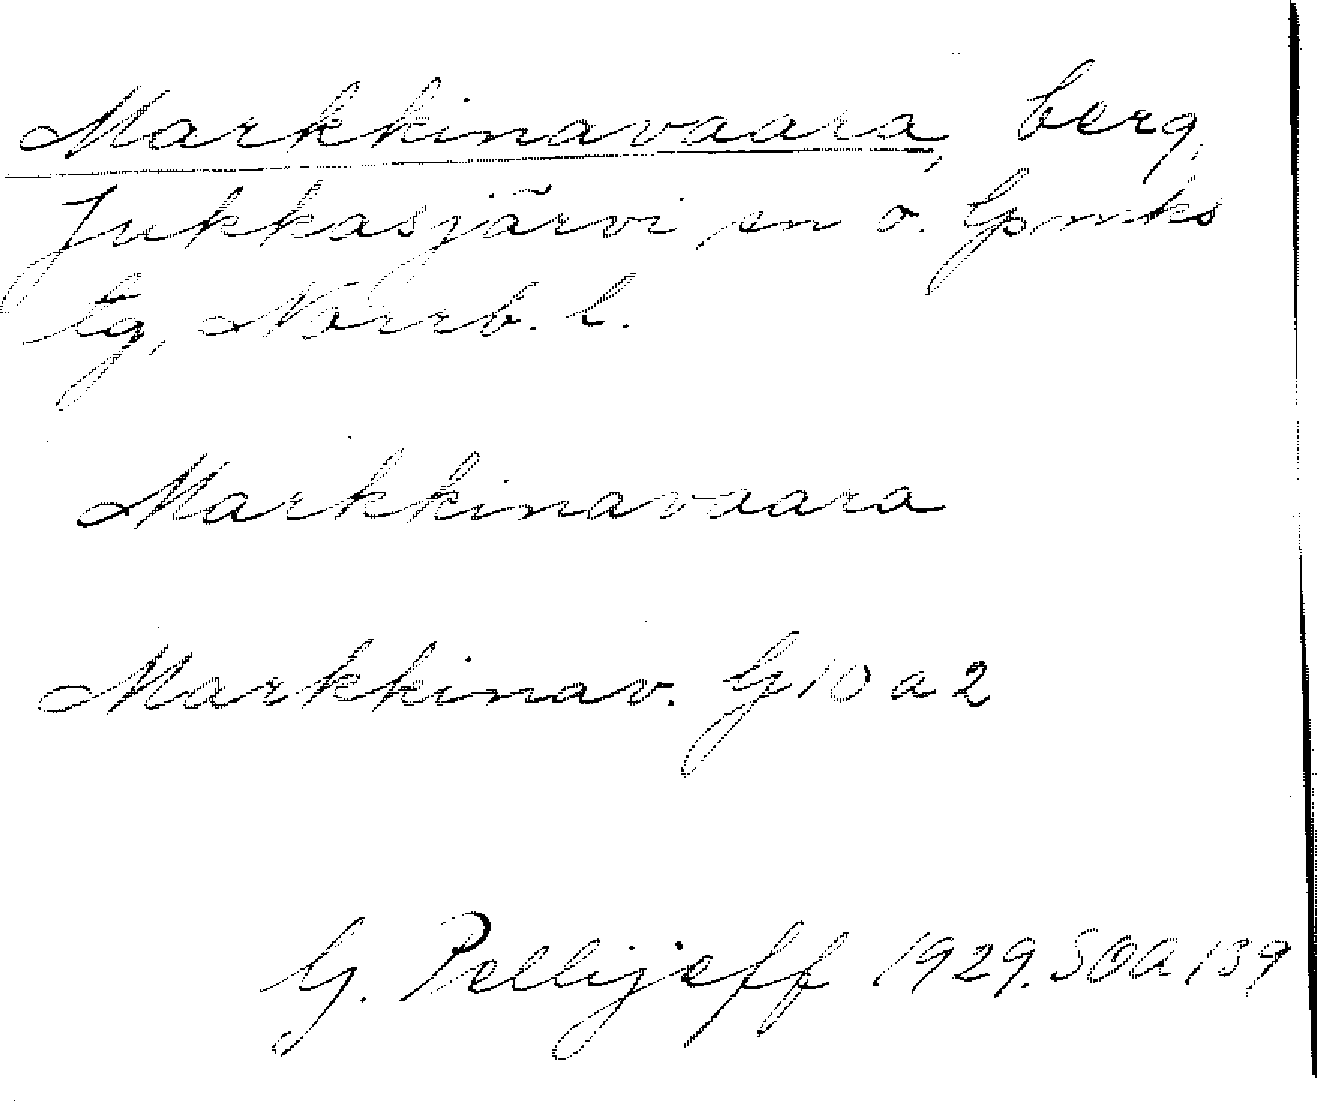 Markkinavaara, berg,
Jukkasjärvi sn o. lpmks
tg, Norrb. l.
Markkinavaara
Markkinav. G 10 a 2
G. Pellijeff 1929. SOA 139